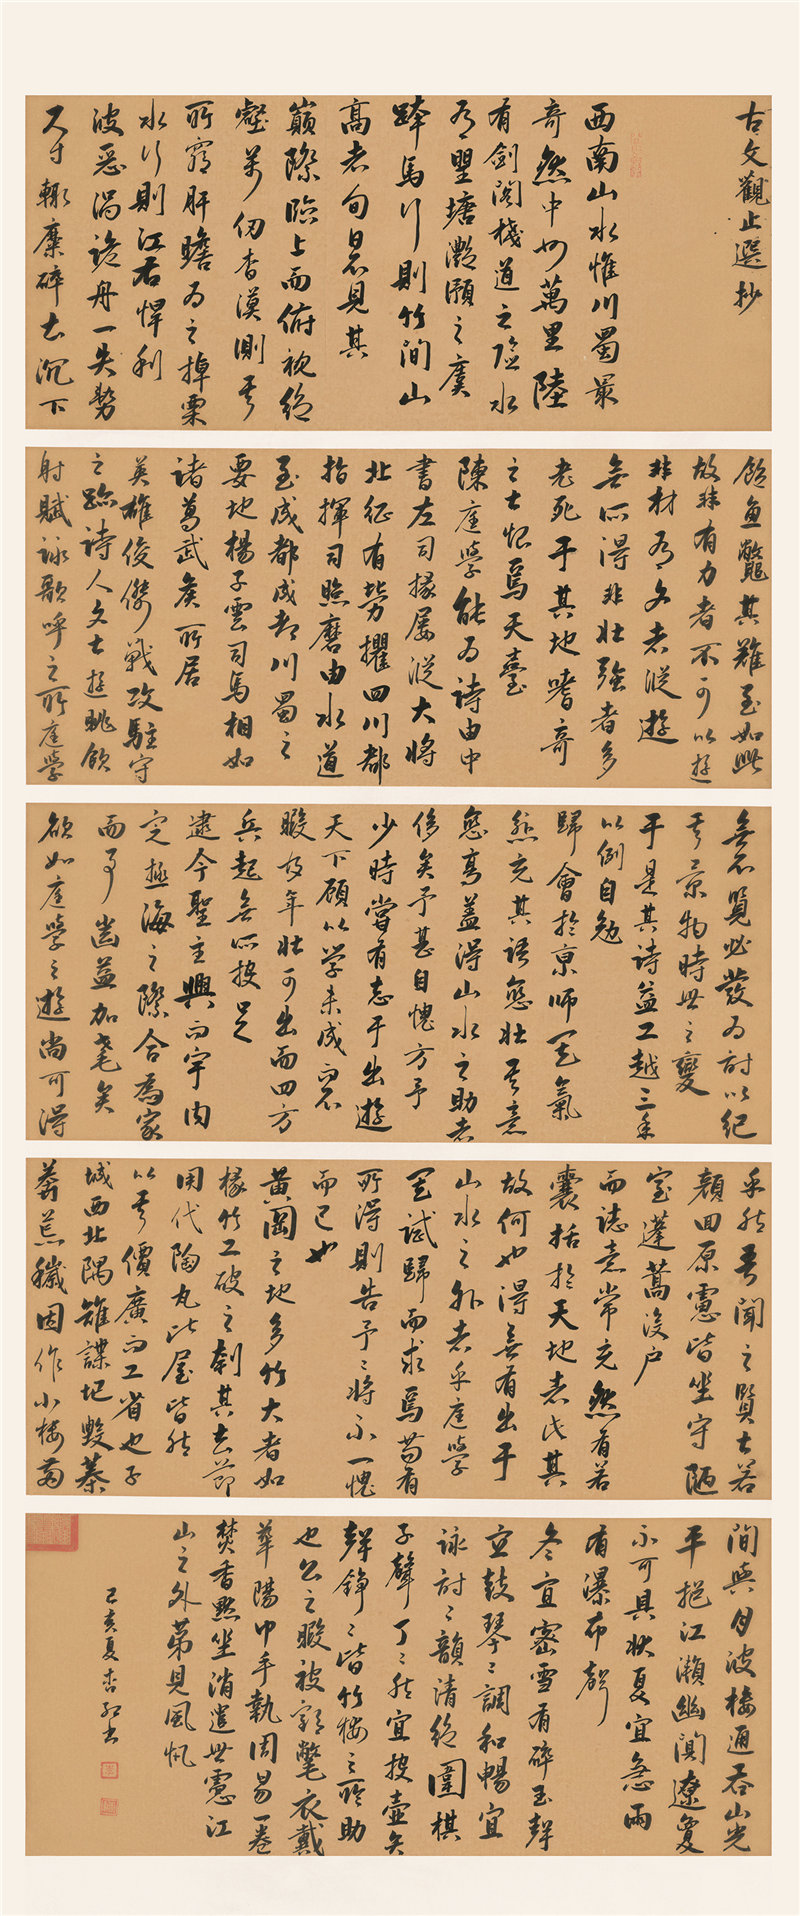 古文觀止選抄
西南山水惟川蜀最
奇然中州萬里陸
有劍閣棧道之險水
有瞿塘灩澦之虞
跨馬行則竹間山
高者旬日不見其
巔際臨上而俯視絕
壑萬仞杳漠測其
所窮肝膽為之掉栗
水行則江石悍利
波惡渦詭舟一失勢
尺寸輒糜碎土沉下
飽魚鱉其難至如此
故非有力者不可以遊
非材有文者縱遊
無所得非壯強者多
老死于其地嗜奇
之士恨焉天臺
陳庭學能為詩由中
書左司掾屢從大將
北征有勞擢四川都
指揮司照磨由水道
至成都成都川蜀之
要地楊子雲司馬相如
諸葛武侯所居
英雄俊傑戰攻駐守
之跡詩人文士遊眺飲
射賦詠歌呼之所庭學
無不覽必發為詩以紀
其景物時世之變
于是其詩益工越三年
以例自勉
歸會於京師其氣
愈充其語愈壯其意
愈高蓋得山水之助者
侈矣予甚自愧方予
少時嘗有志于出遊
天下顧以學未成而不
暇及年壯可出而四方
兵起無所投足
逮今聖主興而宇內
定極海之際合為家
而予齒益加耄矣
欲如庭學之遊尚可得
乎然吾聞之賢士若
顏回原憲皆坐守陋
室蓬蒿沒戶
而誌意常充然有若
囊括於天地者此其
故何也得無有出于
山水之外者乎庭學
其試歸而求焉苟有
所得則告予予將不一愧
而已也
黃岡之地多竹大者如
椽竹工破之刳其去節
用代陶瓦比屋皆然
以其價廉而工省也子
城西北隅雉堞圮毀蓁
莽荒穢因作小樓兩
間與月波樓通吞山光
平挹江瀨幽闃遼夐
不可具狀夏宜急雨
有瀑布聲
冬宜密雪有碎玉聲
宜鼓琴琴調和暢宜
詠詩詩韻清絕圍棋
子聲丁丁然宜投壺矢
聲錚錚皆竹樓之所助
也公之暇被鶴氅衣戴
華陽巾手執周易一卷
焚香默坐消遣世慮江
山之外第見風帆
己亥夏杏紅书